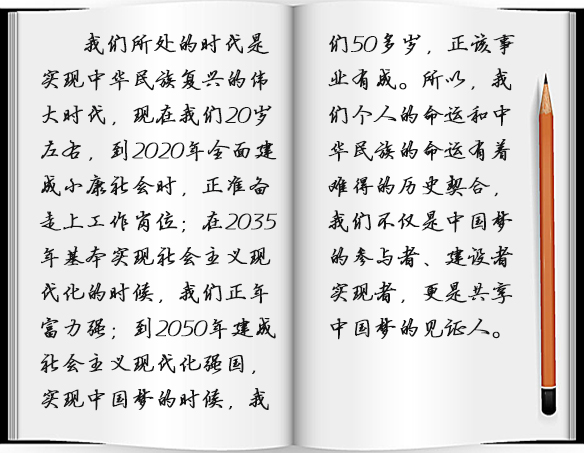 我们所处的时代是
实现中华民族复兴的伟
大时代，现在我们20岁
左右，到2020年全面建
成小康社会时，正准备
走上工作岗位；在2035
年基本实现社会主义现
代化的时候，我们正年
富力强；到2050年建成
社会主义现代化强国，
实现中国梦的时候，我
们50多岁，正该事
业有成。所以，我
们个人的命运和中
华民族的命运有着
难得的历史契合，
我们不仅是中国梦
的参与者、建设者
实现者，更是共享
中国梦的见证人。